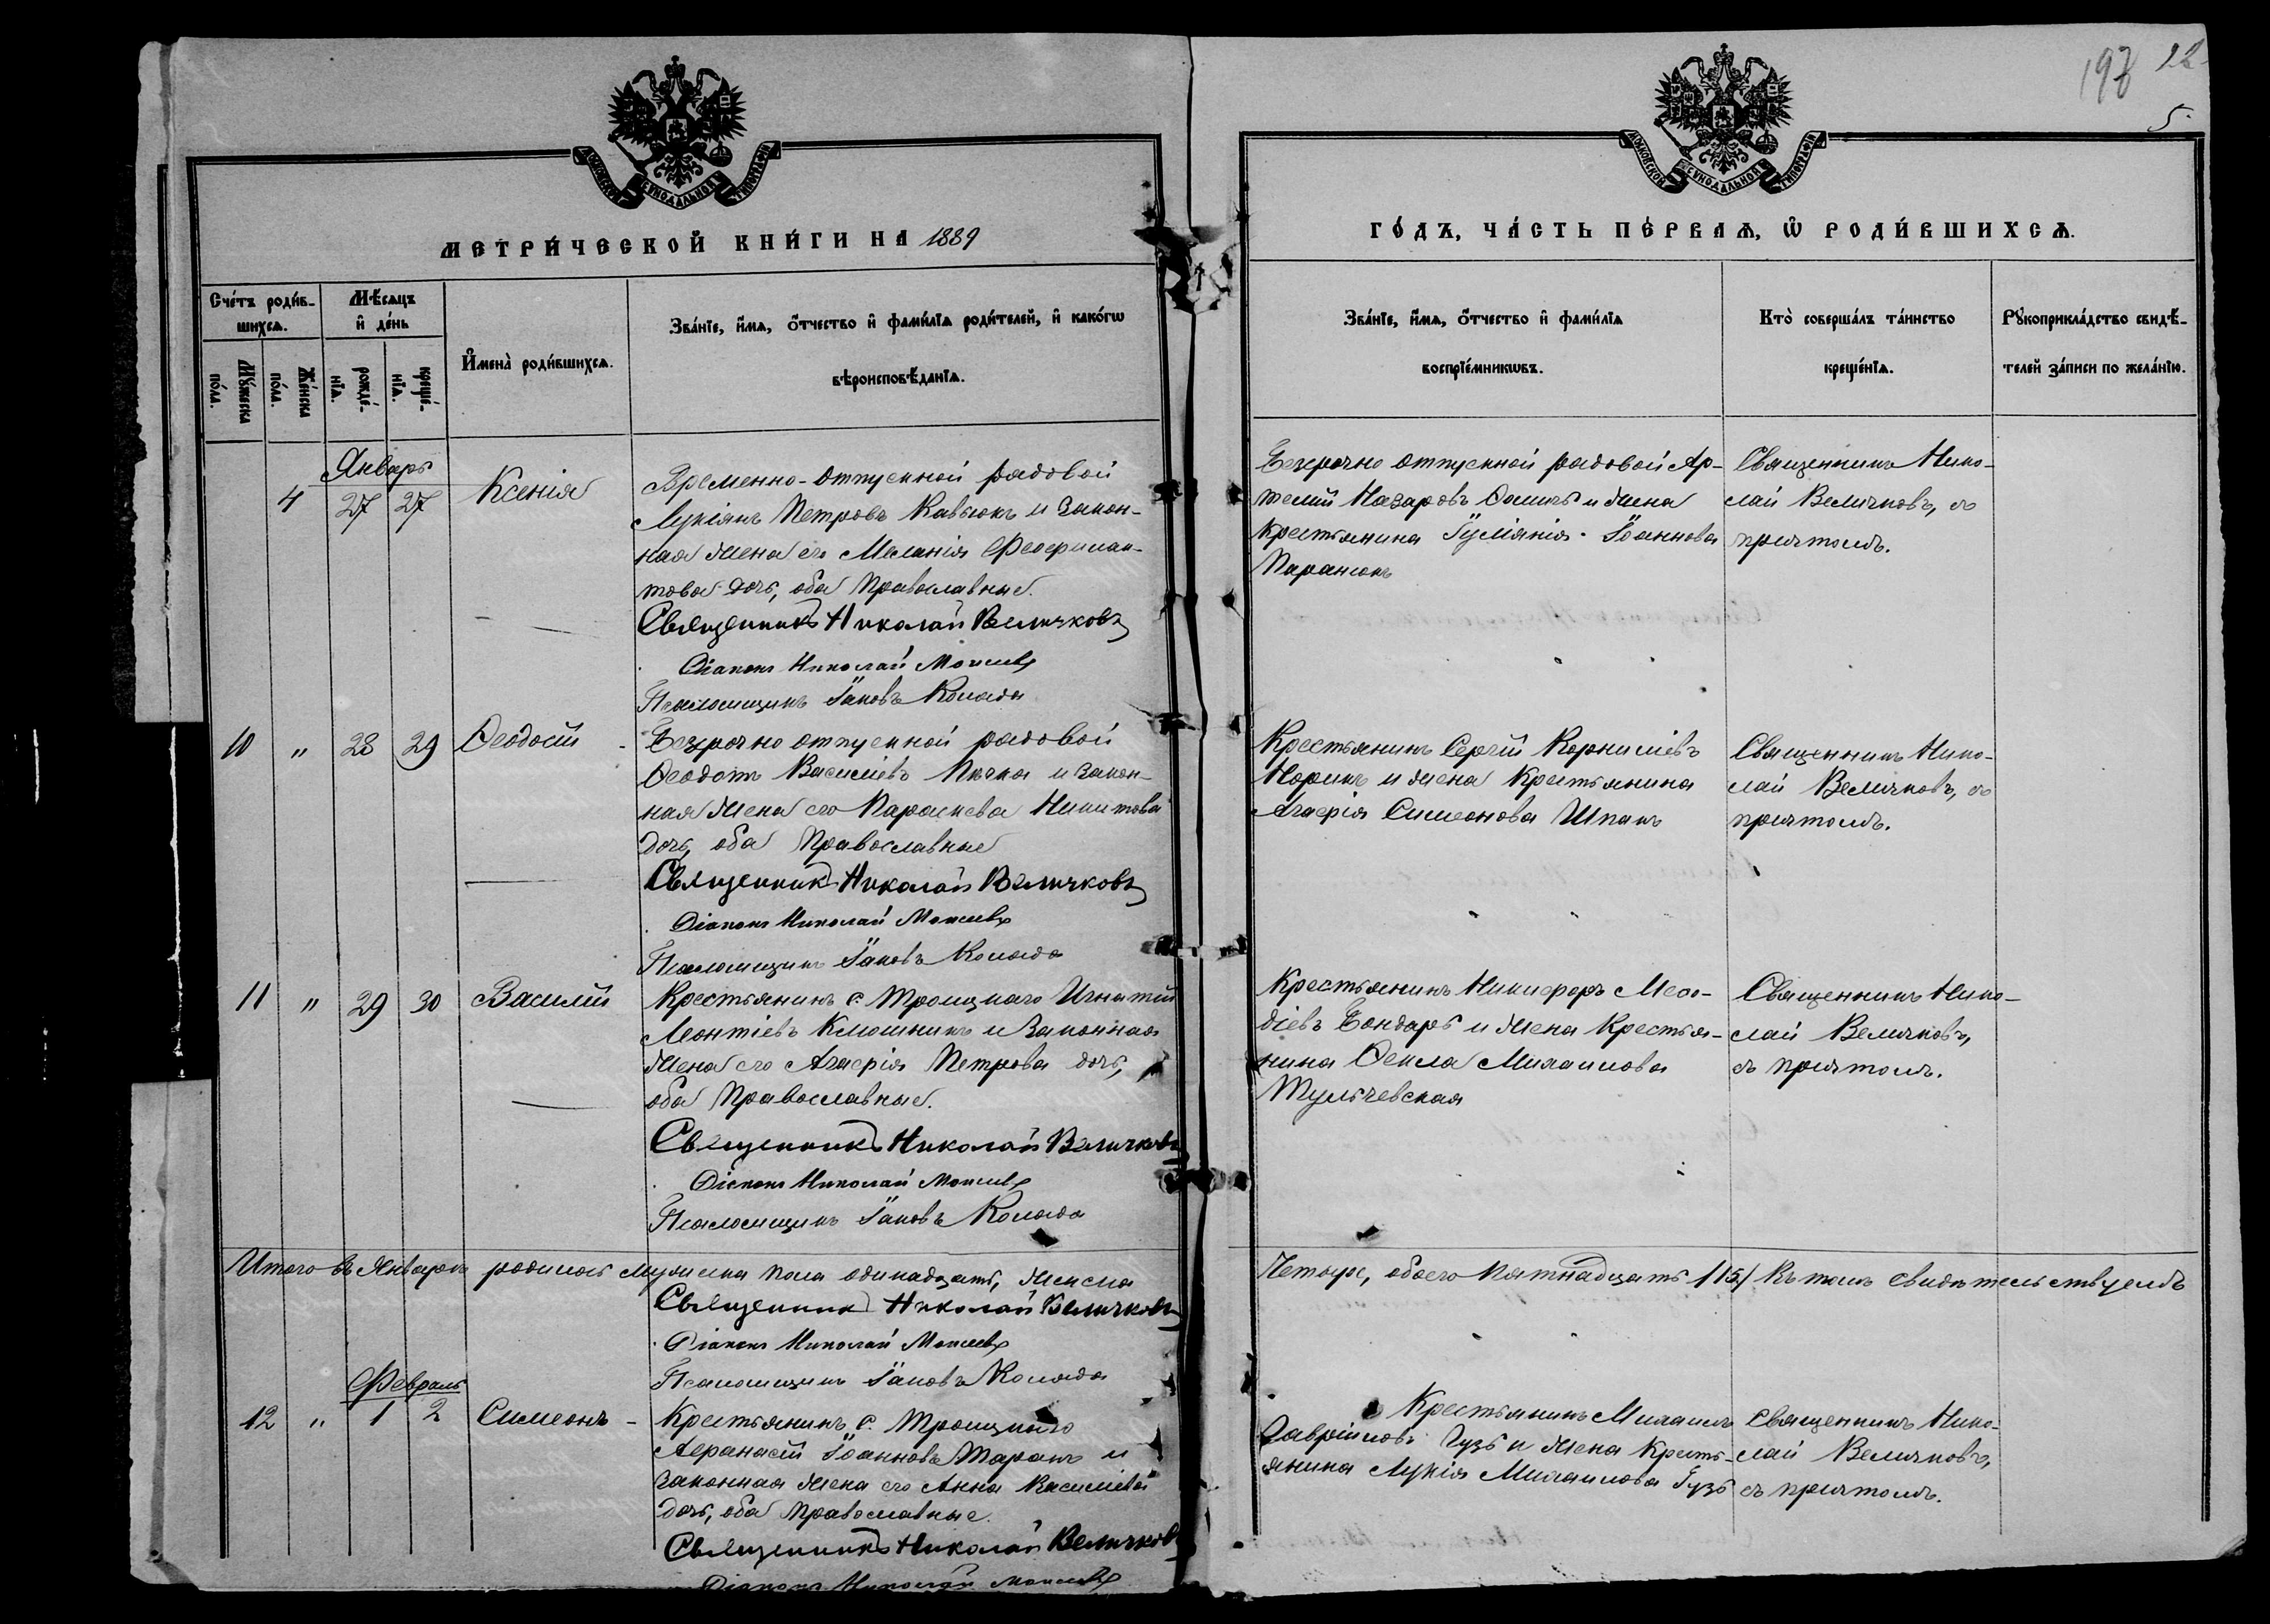 197 22
5
МОСКОВСКОЙ СѴНОДАЛЬНОЙ ТИПОГРАФІИ
МОСКОВСКОЙ СѴНОДАЛЬНОЙ ТИПОГРАФІИ
МЕТРИ́ЧЕСКОЙ КНИ́ГИ НА 1889
ГО́ДЪ, ЧА́СТЬ ПЕ́РВАѦ, Ѡ҆ РОДИ́ВШИХСѦ.
Сче́тъ роди́в-
шихсѧ.
Мꙋ́жеска
по́ла.
Же́нска
по́ла.
Мѣ́сѧцъ
и҆ де́нь
рожде́-
нїѧ.
креще́-
нїѧ.
И҆мена̀ роди́вшихсѧ.
Зва́нїе, и҆́мѧ, ѻ҆́тчество и҆ фами́лїѧ роди́телей, и҆ како́гѡ
вѣроисповѣ́данїѧ.
Зва́нїе, и҆́мѧ, ѻ҆́тчество и҆ фами́лїѧ
воспрїе́мникѡвъ.
Кто̀ соверша́лъ та́инство
креще́нїѧ.
Рꙋкоприкла́дство свидѣ́-
телей за́писи по жела́нїю.
Январь
4 27 27 Ксенія
Временно-отпускной рядовой
Лукіянъ Петровъ Кавьюкъ и закон-
ная жена его Меланія Феофилак-
това дочь, оба Православные.
Священникъ Николай Величковъ
Діаконъ Николай
Псаломщикъ Іаковъ Коляда
Безсрочно отпускной рядовой Ар-
темій Назаровъ и жена
крестьянина Іуліянія Іоаннова
Паранюкъ
Священникъ Нико-
лай Величковъ, съ
причтомъ.
10 " 28 29 Ѳеодосій
Безсрочно отпускной рядовой
Ѳеодотъ Василіевъ и закон-
ная жена его Параскева Никитова
дочь, оба Православные
Священникъ Николай Величковъ
Діаконъ Николай
Псаломщикъ Іаковъ Коляда
Крестьянинъ Сергій Корниліевъ
Норикъ и жена Крестьянина
Агафія Симеонова Шпакъ
Священникъ Нико-
лай Величковъ, съ
причтомъ.
11 " 29 30 Василій
Крестьянинъ с. Троицкаго Игнатій
Леонтіевъ Клюшникъ и законная
жена его Агафія Петрова дочь,
оба Православные.
Священникъ Николай Величковъ
Діаконъ Николай
Псаломщикъ Іаковъ Коляда
Крестьянинъ Никифоръ Меѳо-
діевъ Бондарь и жена Крестья-
нина Ѳекла Михаилова
Тульчевская
Священникъ Нико-
лай Величковъ,
съ причтомъ.
Итого въ Январѣ родилось мужеска пола одинадцать, женска
Четыре, обоего пятнадцать /15/ Въ томъ свидѣтельствуемъ
Священникъ Николай Величковъ
Діаконъ Николай
Псаломщикъ Іаковъ Коляда
Февраль
12 " 1 2 Симеонъ
Крестьянинъ с. Троицкаго
Аѳанасій Іоанновъ Таранъ и
законная жена его Анна Василіева
дочь, оба Православные.
Священникъ Николай Величковъ
Діаконъ Николай
Крестьянинъ Михаилъ
Гавріиловъ Гузь и жена Кресть-
янина Лукія Михаилова Гузь
Священникъ Нико-
лай Величковъ,
съ причтомъ.